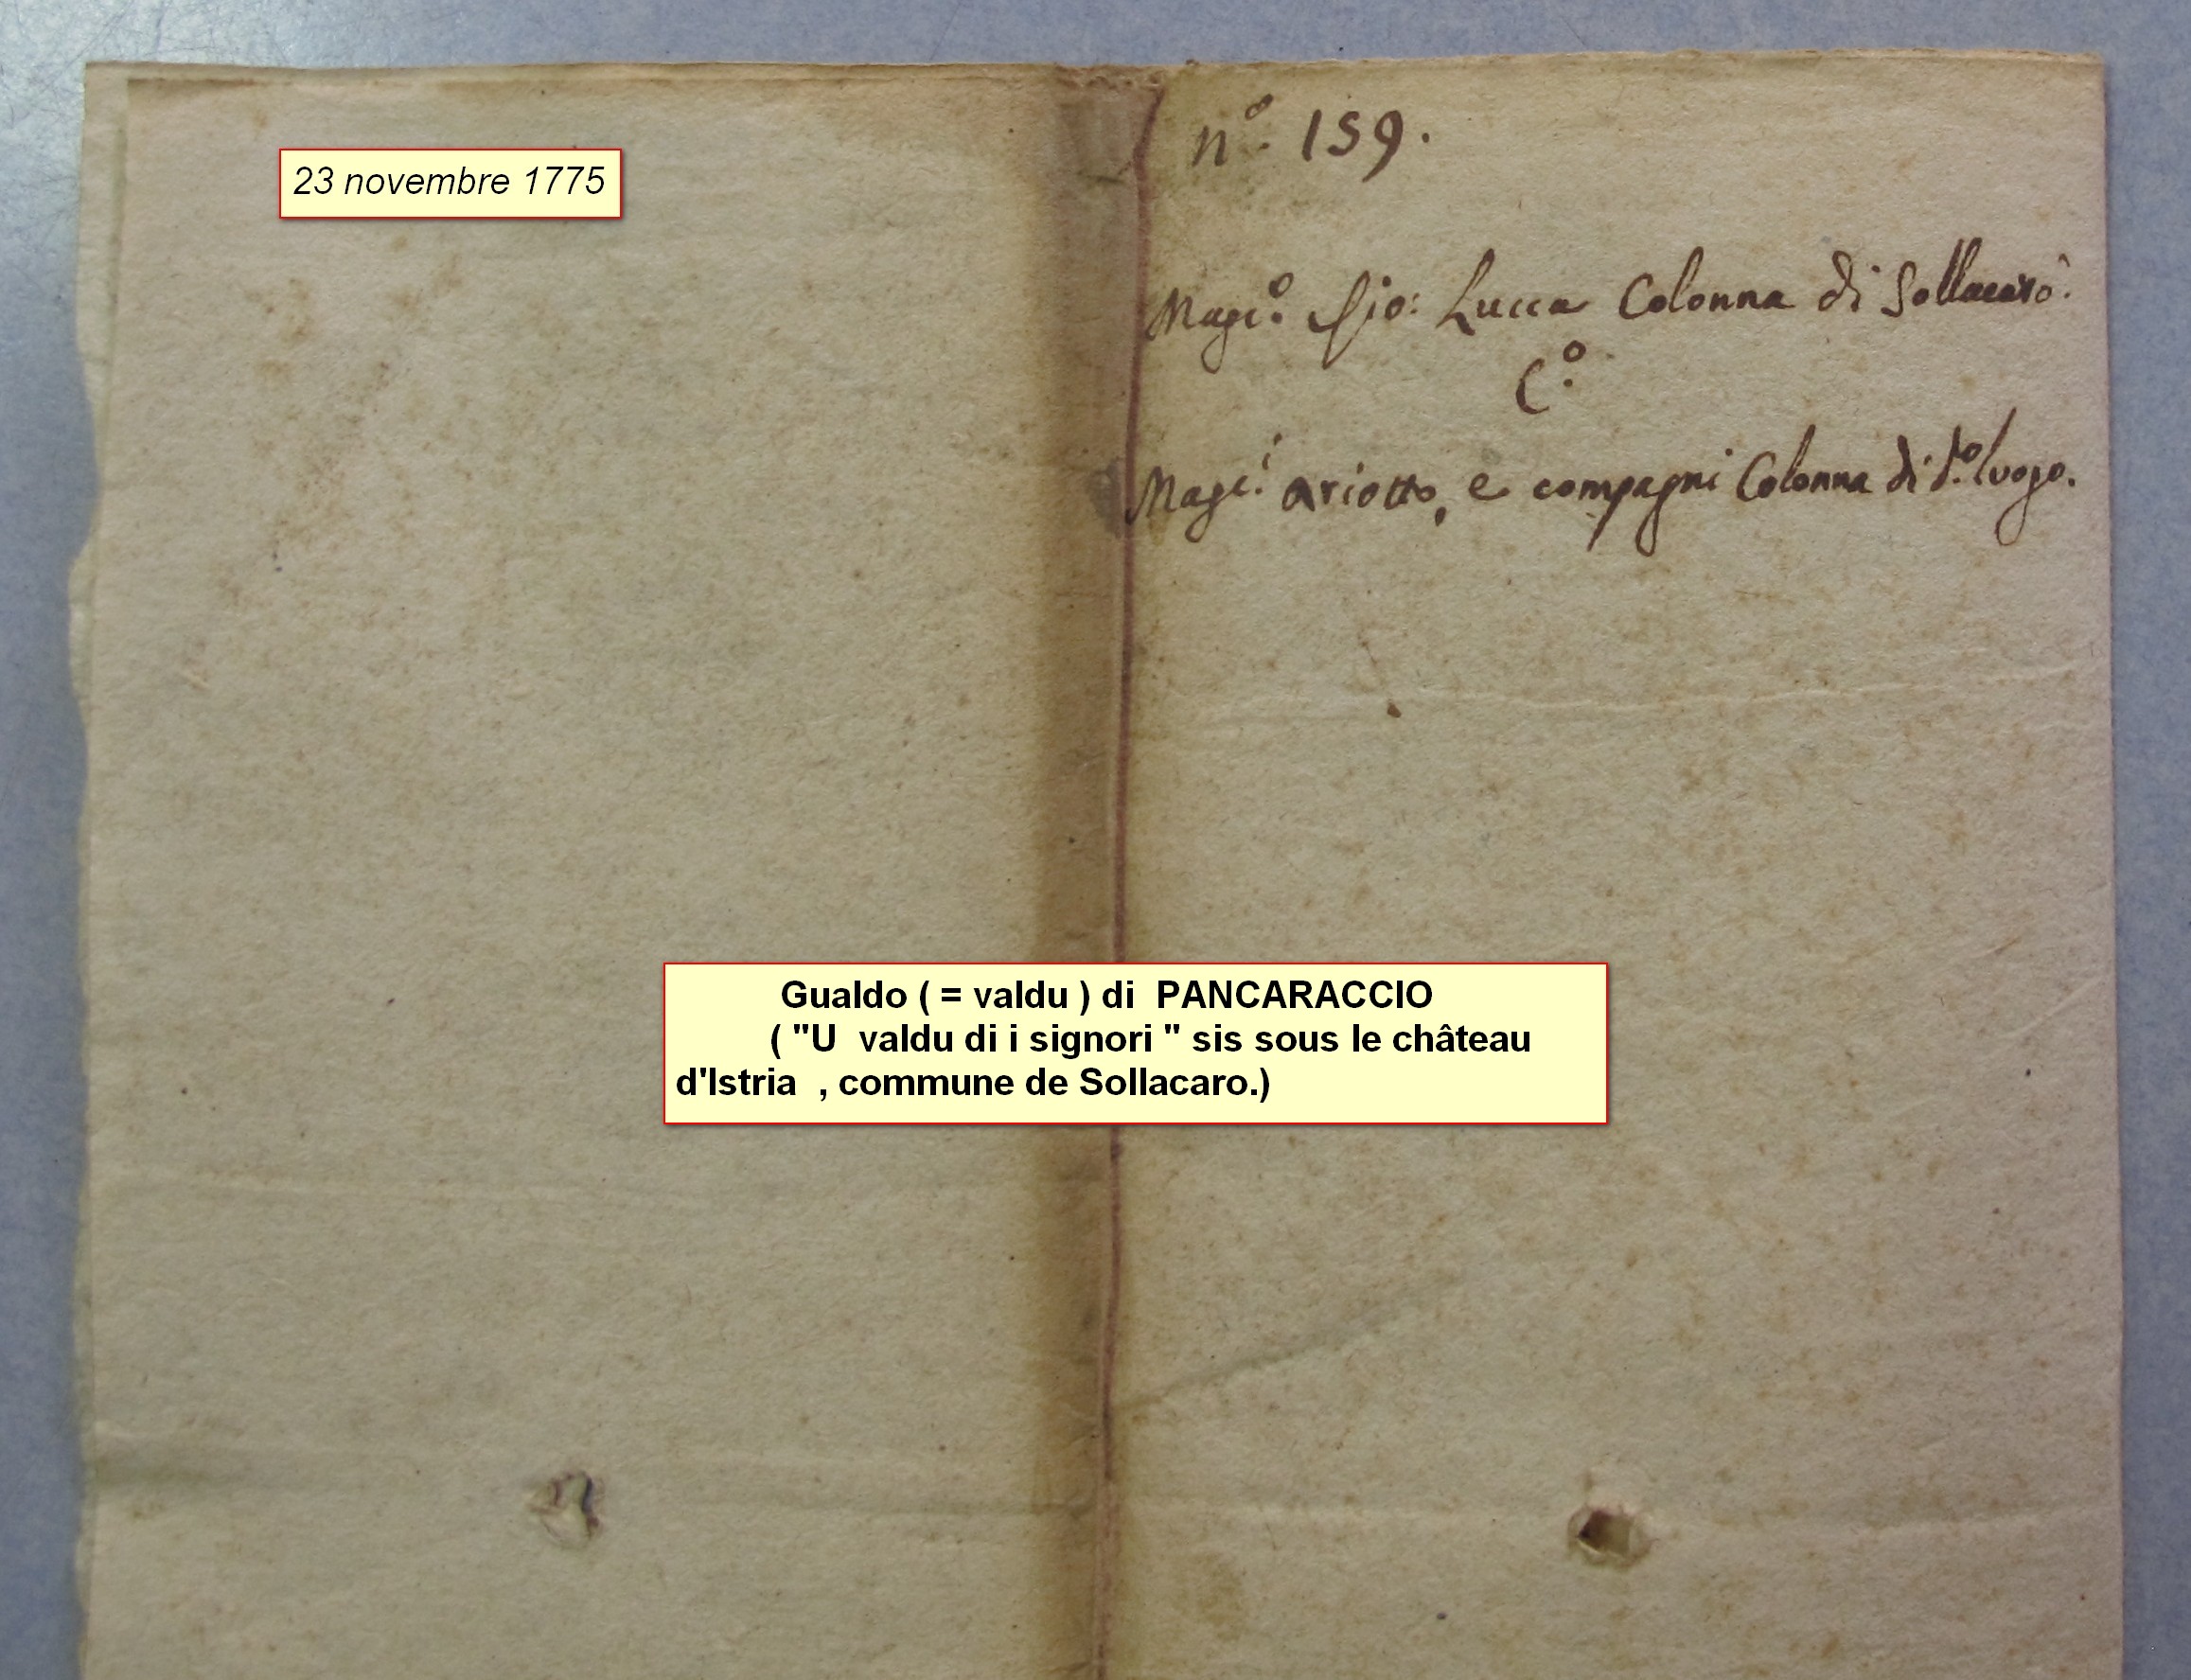 23 novembre 1775
nº. 159.
Magcº. Gio: Lucca Colonna di Sollacarò.
Cº.
Magci. Ariotto, e compagni Colonna di dº. luogo.
Gualdo ( = valdu ) di PANCARACCIO
( "U valdu di i signori " sis sous le château
d'Istria , commune de Sollacaro.)